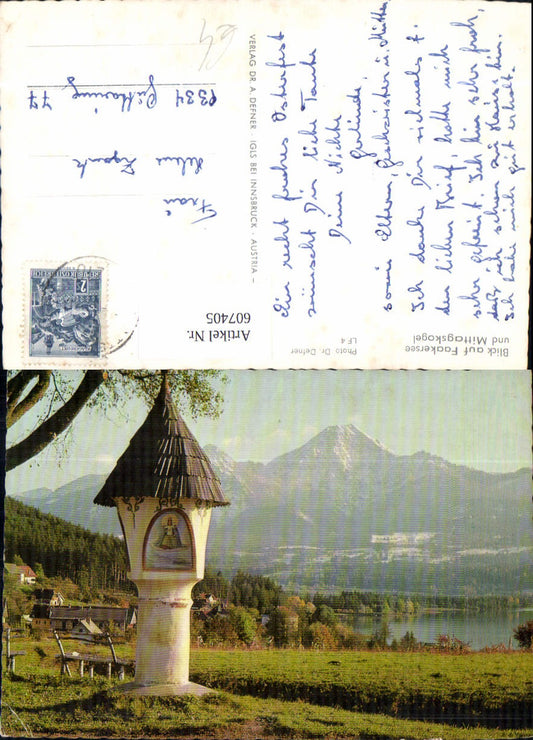 Ein recht frohes Osterfest
wünscht Dir liebe Tante
Deine Nichte
Gerlinde
sowie Eltern, Geschwister u. Mutter
Ich danke Dir vielmals f.
den lieben Brief, habe mich
sehr gefreut. Ich bin sehr froh,
daß ich schon zu Hause bin.
Ich habe mich gut erholt.
VERLAG DR. A. DEFNER · IGLS BEI INNSBRUCK · AUSTRIA –
Frau
9334 Guttaring 77
REPUBLIK ÖSTERREICH
2
Artikel Nr.
607405
Photo Dr. Defner
LF 4
Blick auf Faakersee
und Mittagskogel